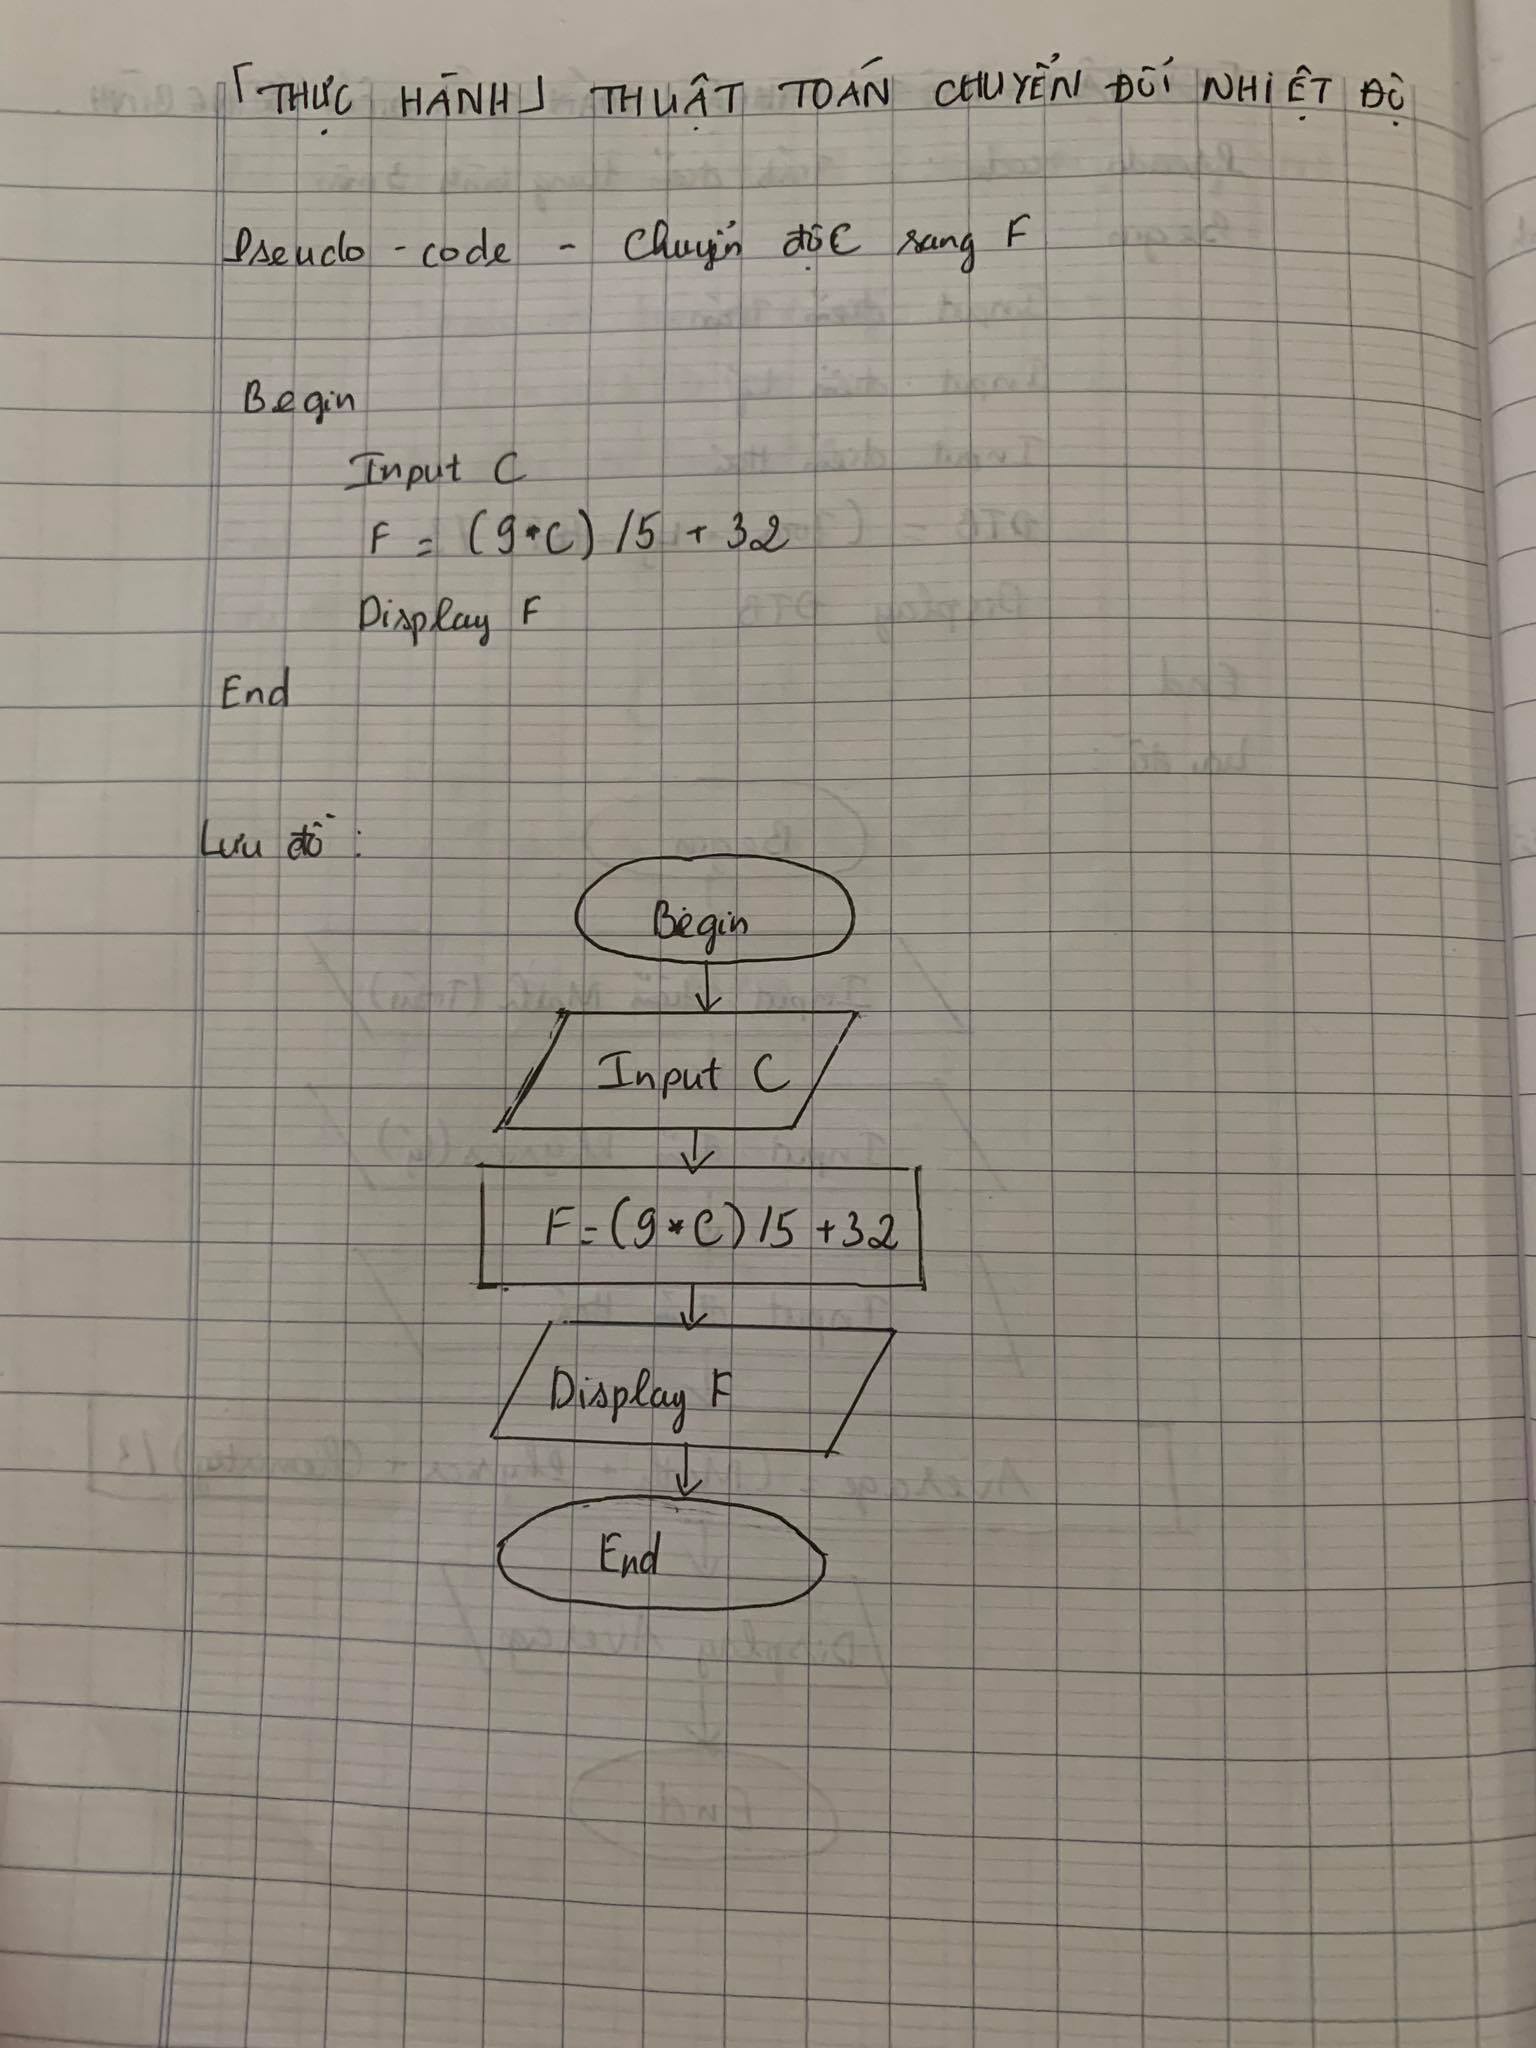 「THỰC HÀNH」 THUẬT TOÁN CHUYỂN ĐỔI NHIỆT ĐỘ
Pseudo - code - Chuyển độ C sang F
Begin
Input C
F = (9*C) /5 + 32
Display F
End
Lưu đồ :
Begin
Input C
F = (9*C) /5 + 32
Display F
End